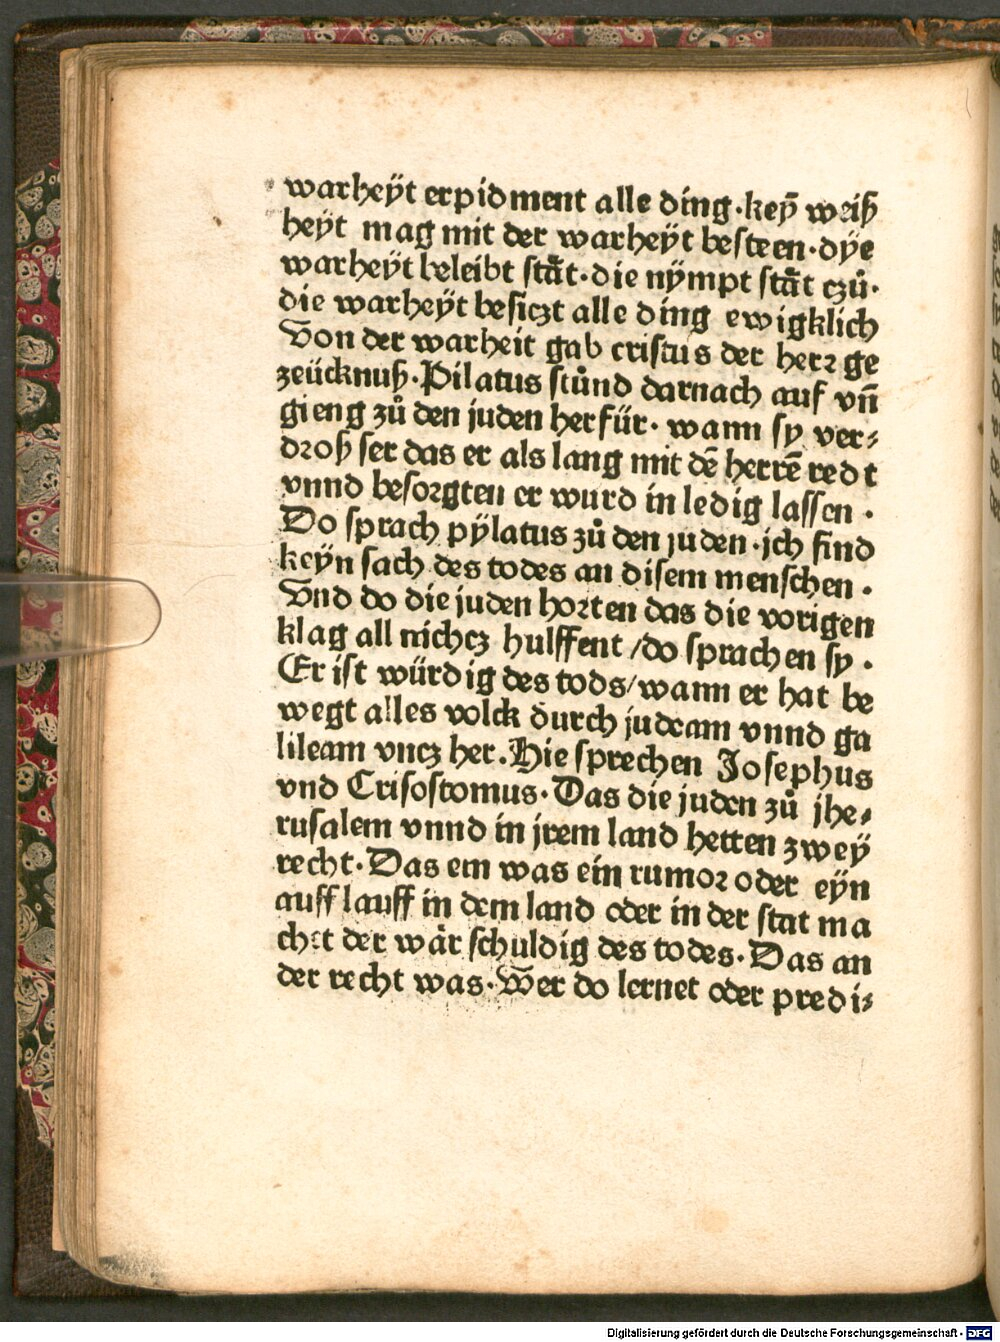 warheÿt erpidment alle ding·keȳ weiß
heÿt mag mit der warheÿt besteen·dÿe
warheÿt beleibt stät·die nÿmpt stät czů·
die warheÿt besiczt alle ding ewigklich
Von der warheit gab cristus der herr ge
zeücknuß·Pilatus stůnd darnach auf vn̄
gieng zů den juden herfür· wann sy ver⸗
droß ser das er als lang mit dē herrē redt
vnnd besorgten er wurd in ledig lassen ·
Do sprach pÿlatus zů den juden·ich find
keÿn sach des todes an disem menschen ·
Vnd do die juden horten das die vorigen
klag all nichcz hulffent /do sprachen sy ·
Er ist würdig des tods/wann er hat be
wegt alles volck durch judeam vnnd ga
lileam vncz her.Hie sprechen Josephus
vnd Crisostomus·Das die juden zů jhe⸗
rusalem vnnd in jrem land hetten zweÿ
recht·Das ein was ein rumor oder eÿn
auff lauff in dem land oder in der stat ma
chet der wär schuldig des todes·Das an
der recht was·Wer do lernet oder predi⸗
Digitalisierung gefördert durch die Deutsche Forschungsgemeinschaft - DFG